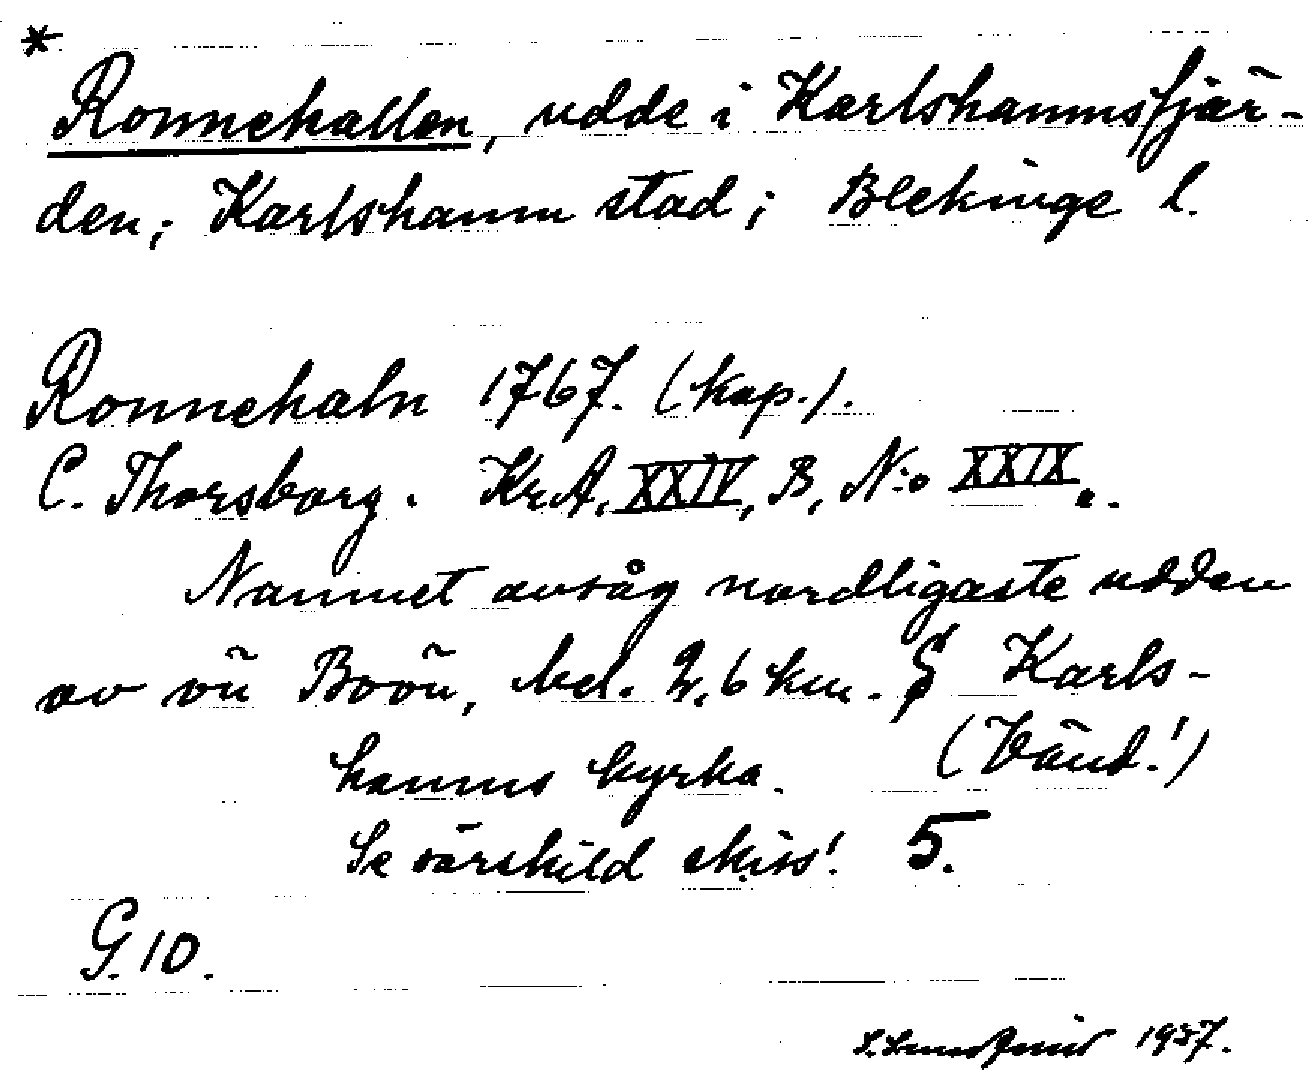 *
Ronnehallen, udde i Karlshamnsfjär-
den; Karlshamn stad; Blekinge l.
Ronnehaln 1767. (kap.).
C. Thorsborg. KrA, XXIV, B, N:o XXIX.
Namnet avsåg nordligaste udden
av ön Boön, bel. 2,6 km. S Karls-
hamns kyrka. (Vänd!)
Se särskild skiss! 5.
G. 10.
1937.